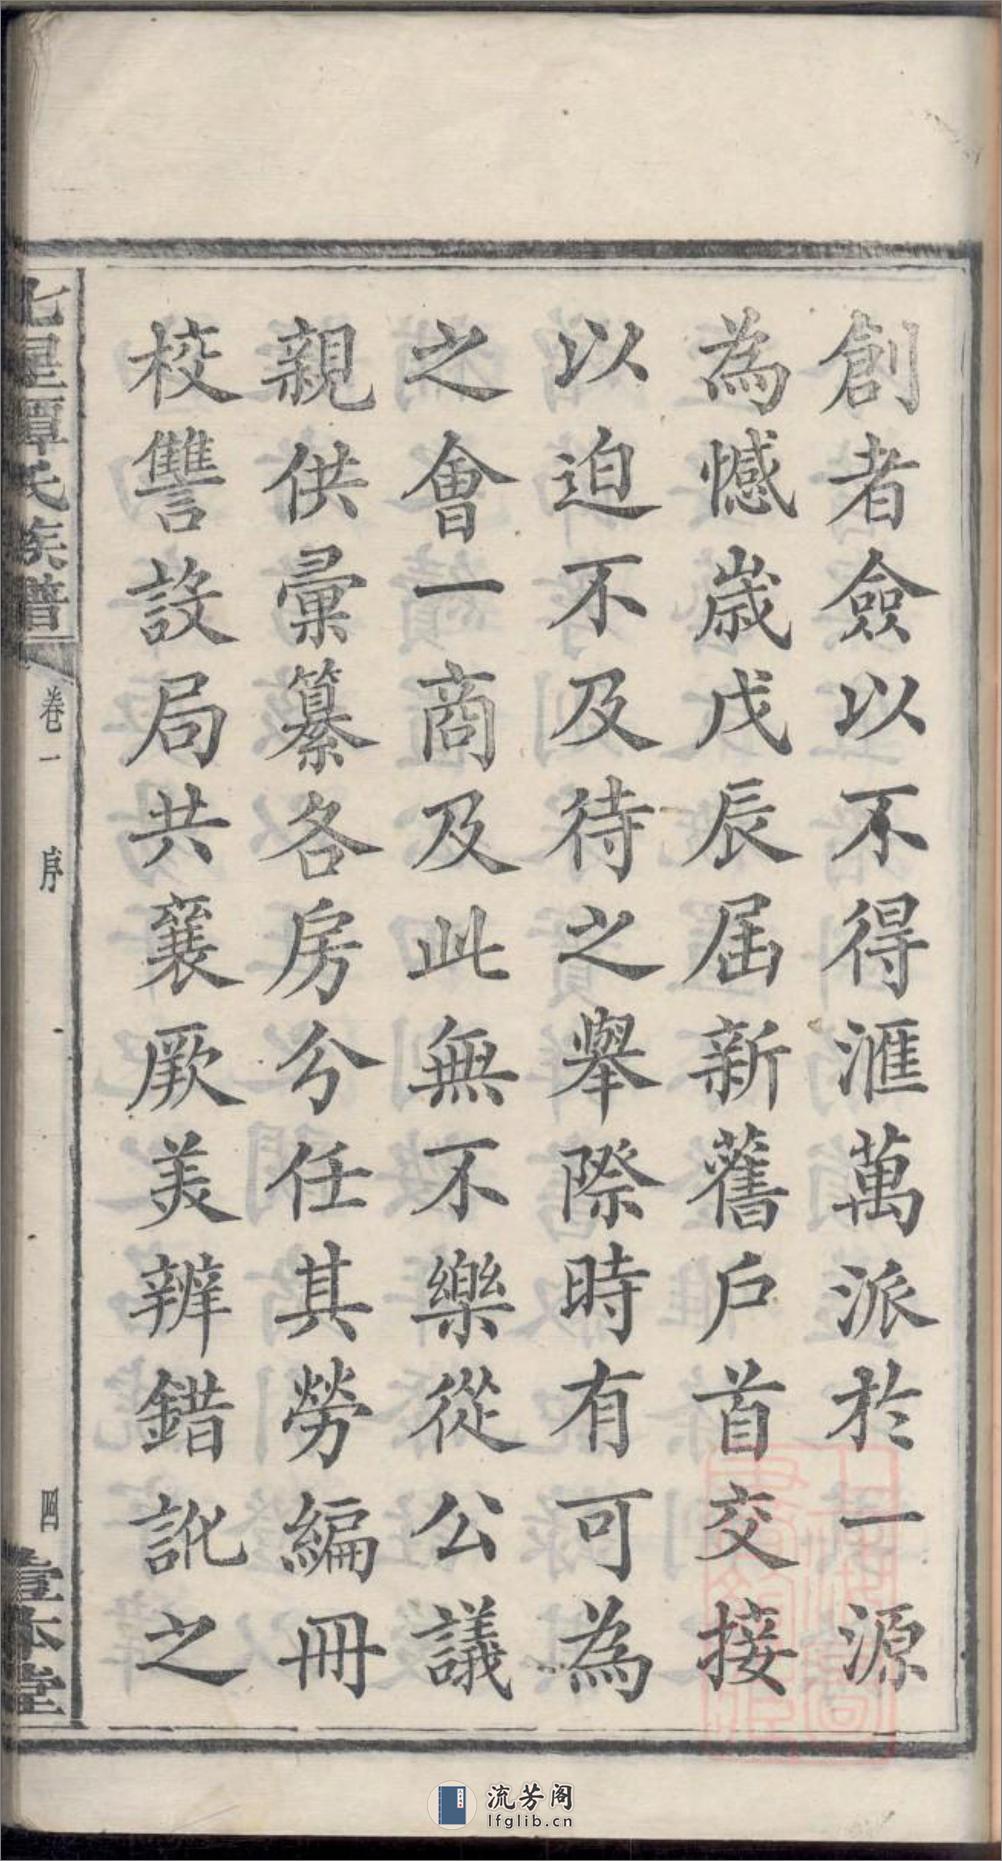 創者僉以不得滙萬派於一源
為憾歲戊辰屆新舊戶首交接
以迫不及待之舉際時有可為
之會一商及此無不樂從公議
親供彙纂各房分任其勞編冊
校讐設局共襄厥美辨錯訛之
七星譚氏族譜
卷一
序
四
堂
流芳阁
lfglib.cn